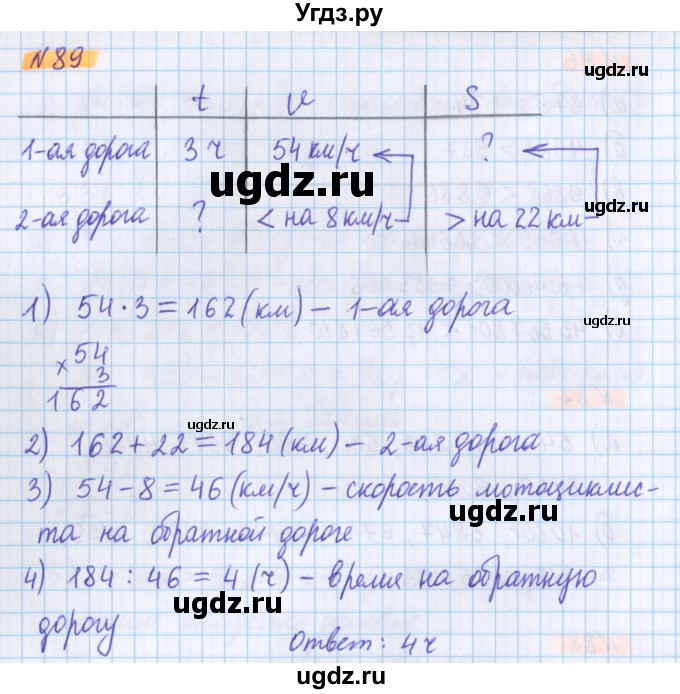 Угдз.ру
№89
t v S
1-ая дорога 3 ч 54 км/ч ?
2-ая дорога ? < на 8 км/ч > на 22 км
1) 54 · 3 = 162 (км) – 1-ая дорога
× 54
3
162
2) 162 + 22 = 184 (км) – 2-ая дорога
3) 54 – 8 = 46 (км/ч) – скорость мотоциклис-
та на обратной дороге
4) 184 : 46 = 4 (ч) – время на обратную
дорогу
Ответ: 4 ч
ugdz.ru
ugdz.ru
ugdz.ru
ugdz.ru
ugdz.ru
ugdz.ru
ugdz.ru
ugdz.ru
ugdz.ru
ugdz.ru
ugdz.ru